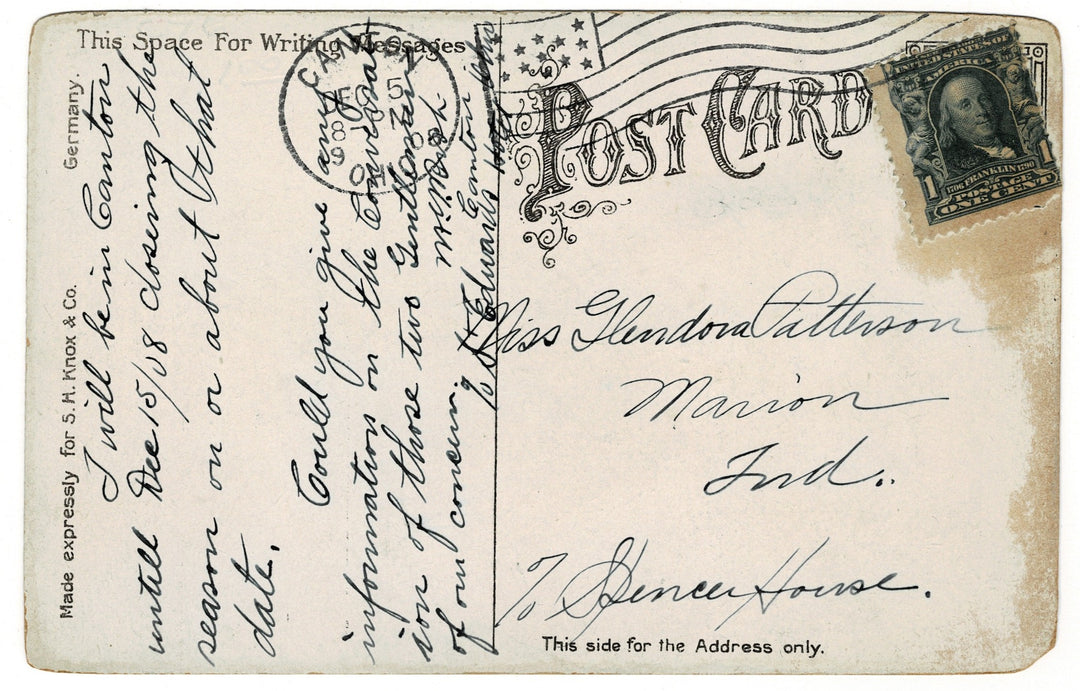 This Space For Writing Messages
Germany.
Made expressly for S. H. Knox & Co.
I will be in Canton
untill Dec 15/08 closing the
season on or about that
date.
Could you give any
information on the
ion of those two Gentlemen
of our concern.
Canton Ohio
% Edwards
CANTON
DEC 5
1908
OHIO
POST CARD
UNITED STATES OF
AMERICA
1706 FRANKLIN 1790
1 POSTAGE 1
ONE CENT
Miss Glendora Patterson
Marion
Ind.
% Spencer House.
This side for the Address only.